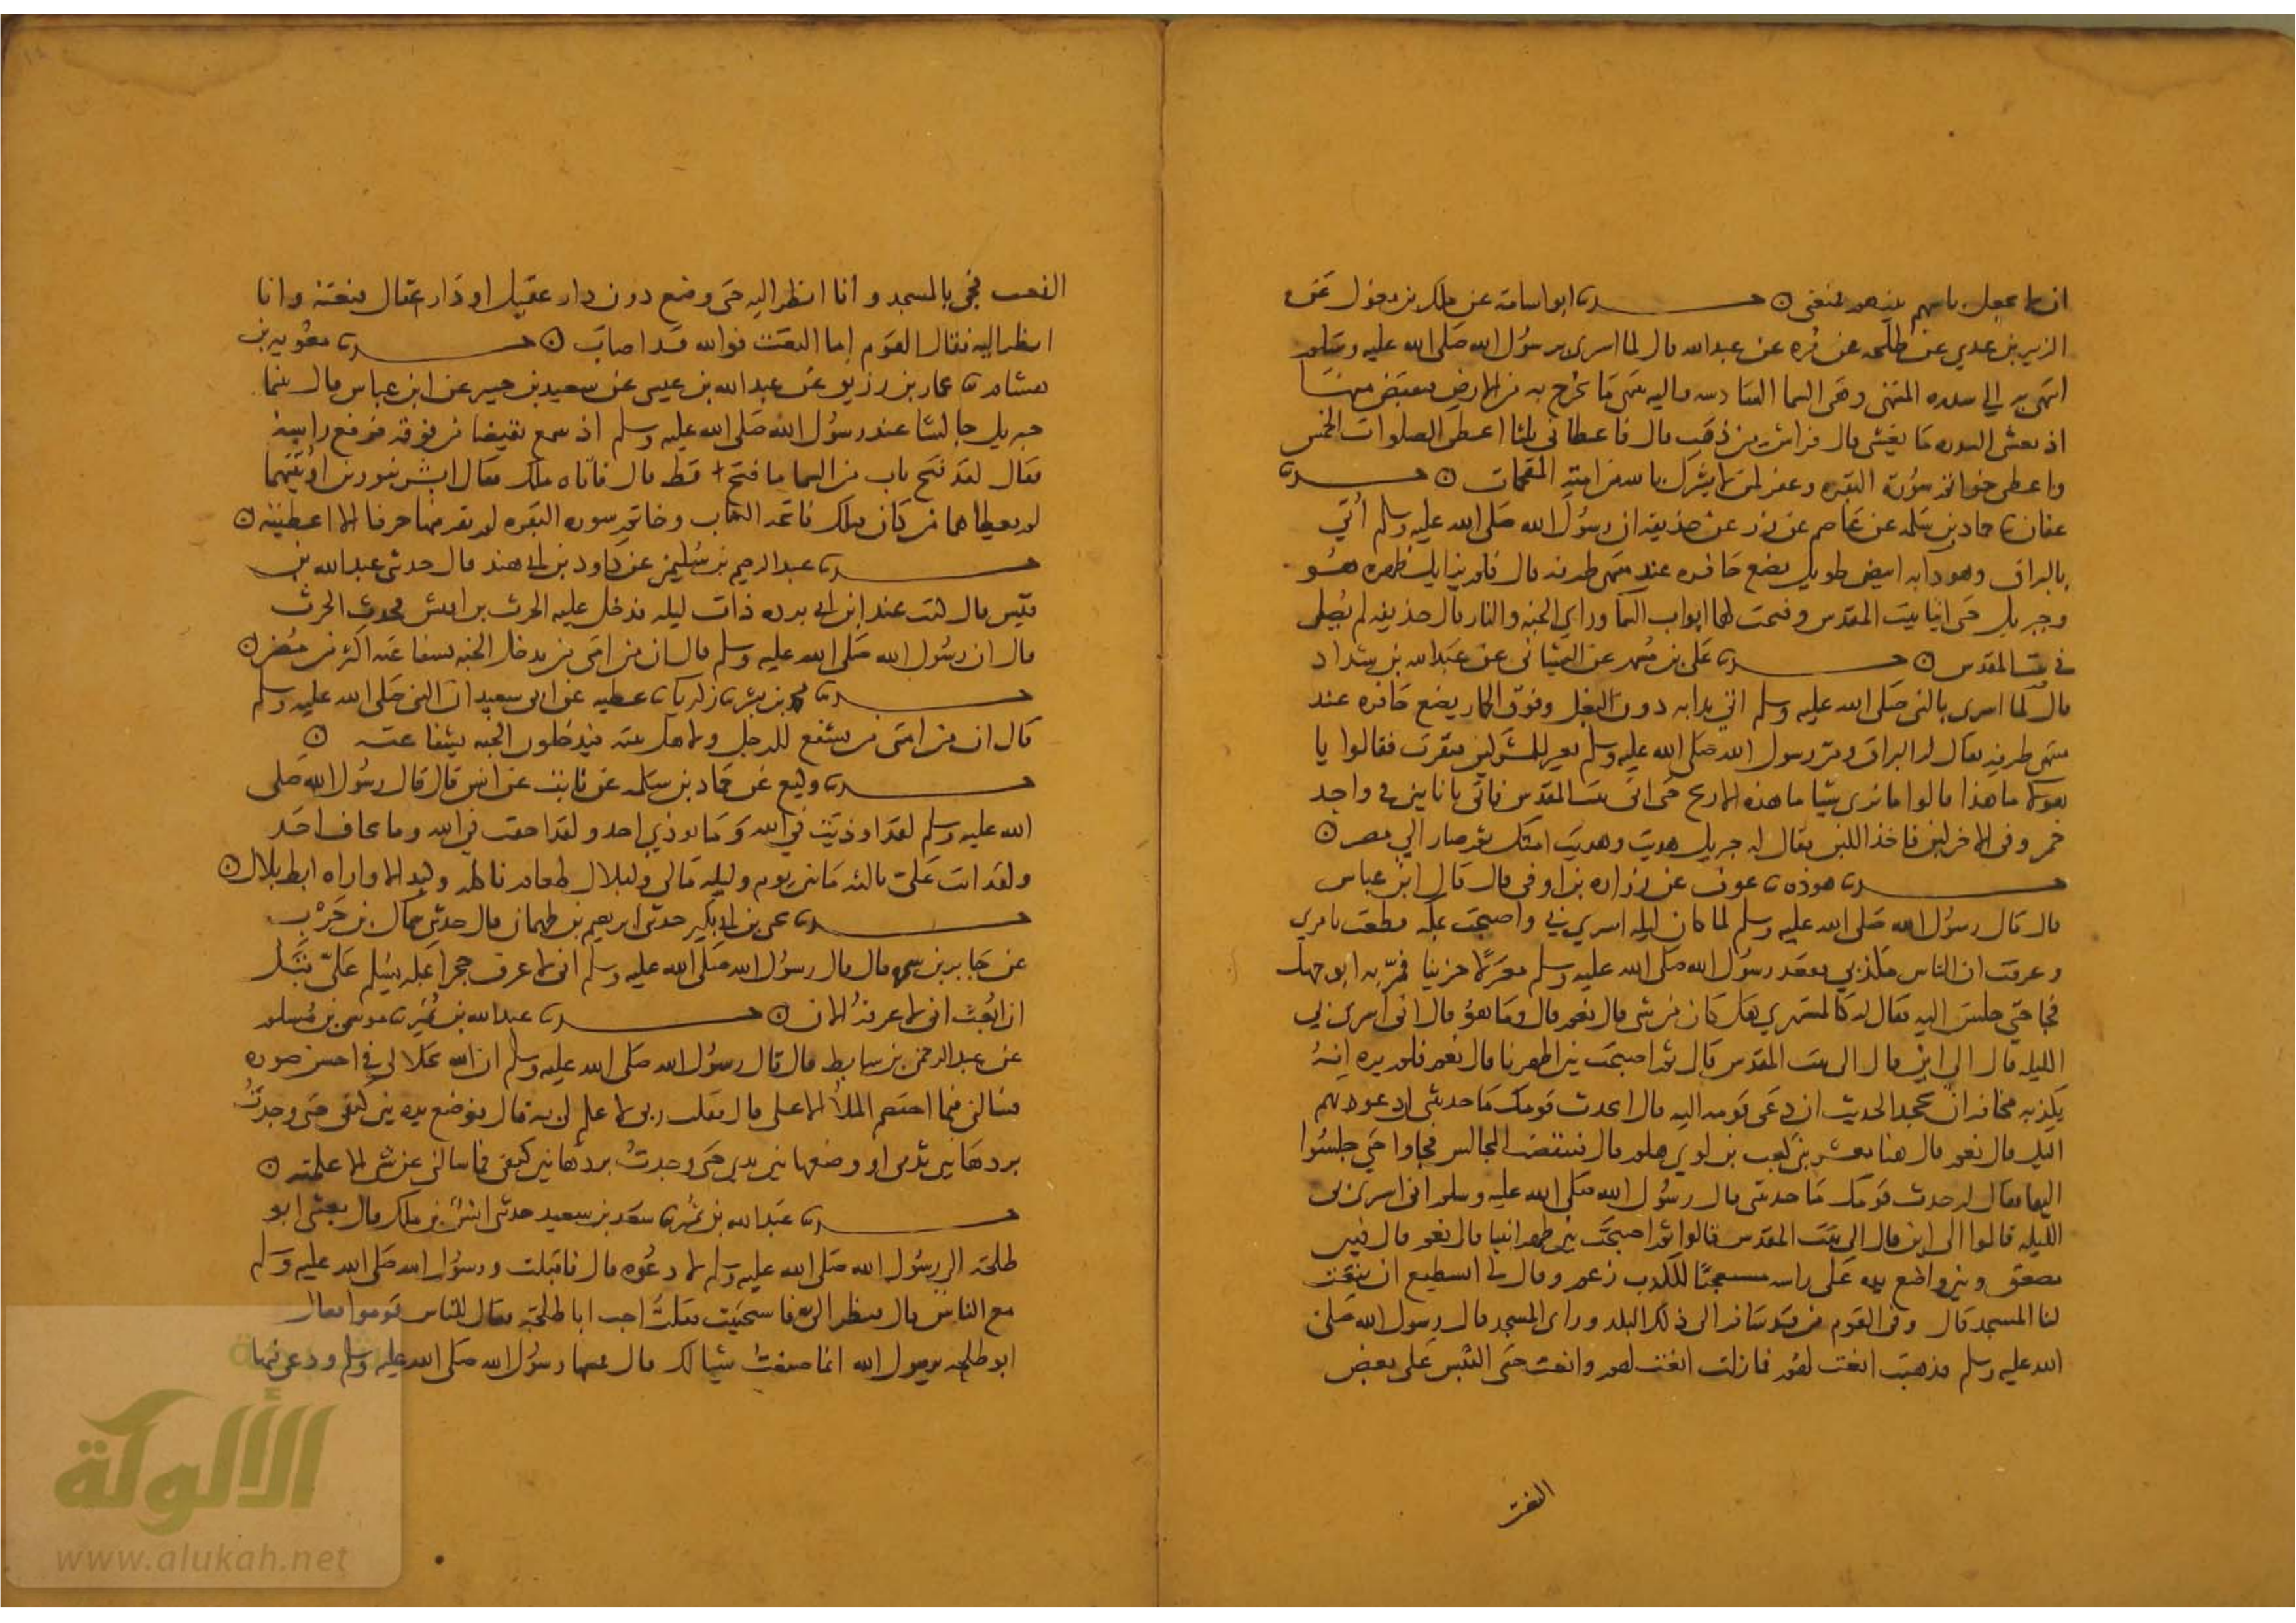 ان لا يجعل باسهم بينهم فمنعني ⊙ حدثنا ابو اسامة عن ملك بن مغول عن
الزبير بن عدي عن طلحه عن مره عن عبدالله قال لما اسري برسول الله صلى الله عليه وسلم
انتهي به الي سدره المنتهى وهي السما السادسه واليه ينتهي ما يخرج به من الارض فيقبض منها
اذ يغشى السدره ما يغشى قال فراش من ذهب قال فاعطاني ثلثا اعطى الصلوات الخمس
واعطى خواتم سورة البقره وغفر لمن لا يشرك بالله من امته المقحمات ⊙ حدثنا
عفان نا حماد بن سلمه عن عاصم عن زر عن حذيفه ان رسول الله صلى الله عليه وسلم أتي
بالبراق وهو دابه ابيض طويل يضع حافره عند منتهى طرفه قال فلم يزايل ظهره هو
وجبريل حتى اتيا بيت المقدس وفتحت لهما ابواب السما وراي الجنه والنار قال حذيفه لم يصلي
في بيت المقدس ⊙ حدثنا علي بن مسهر عن الشيباني عن عبدالله بن شداد
قال لما اسري بالنبي صلى الله عليه وسلم اتي بدابه دون البغل وفوق الحمار يضع حافره عند
منتهى طرفه يقال له البراق ومر رسول الله صلى الله عليه وسلم بعير للمشركين فنفرت فقالوا يا
هولا ما هذا قالوا ما نرى شيا ما هذه الا ريح حتى اتى بيت المقدس فاتي باناين في واحد
خمر وفي الاخر لبن فاخذ اللبن فقال له جبريل هديت وهديت امتك ثم صار الي مصر ⊙
حدثنا هوذه نا عوف عن زراره بن اوفى قال قال ابن عباس
قال قال رسول الله صلى الله عليه وسلم لما كان ليله اسري بي واصبحت بمكه فظعت بامري
وعرفت ان الناس مكذبي فقعد رسول الله صلى الله عليه وسلم معتزلا حزينا فمر به ابو جهل
فجا حتى جلس اليه فقال له كالمستهزي هل كان من شي قال نعم قال وما هو قال اني اسري بي
الليله قال الى اين قال الى بيت المقدس قال ثم اصبحت بين اظهرنا قال نعم فلم يره انه
يكذبه مخافه ان يجحد الحديث ان دعى قومه اليه قال اتحدث قومك ما حدثتني ان دعوتهم
اليك قال نعم قال هيا معشر بني كعب بن لوي هلم قال فتنفضت المجالس فجاوا حتى جلسوا
اليهما فقال له حدث قومك ما حدثتني قال رسول الله صلى الله عليه وسلم اني اسري بي
الليله قالوا الى اين قال الى بيت المقدس قالوا ثم اصبحت بين ظهرانينا قال نعم قال فبين
مصفق وبين واضع يده على راسه متعجبا للكذب زعم وقال اتستطيع ان تنعت
لنا المسجد قال وفي القوم من قد سافر الى ذلك البلد وراى المسجد قال رسول الله صلى
الله عليه وسلم فذهبت انعت لهم فما زلت انعت لهم وانعت حتى التبس علي بعض
النعت
النعت فجي بالمسجد وانا انظر اليه حتى وضع دون دار عقيل او دار عقال فنعته وانا
انظر اليه فقال القوم اما النعت فوالله قد اصاب ⊙ حدثنا معويه بن
هشام نا عمار بن رزيق عن عبدالله بن عيسى عن سعيد بن جبير عن ابن عباس قال بينما
جبريل جالسا عند رسول الله صلى الله عليه وسلم اذ سمع نقيضا من فوقه فرفع راسه
فقال لقد فتح باب من السما ما فتح قط قال فاتاه ملك فقال ابشر بنورين اوتيتهما
لم يعطاهما من كان قبلك فاتحه الكتاب وخاتم سوره البقره لم تقر منها حرفا الا اعطيته ⊙
حدثنا عبدالرحيم بن سليمن عن داود بن ابي هند قال حدثني عبدالله بن
قيس قال كنت عند ابن ابي برده ذات ليله فدخل عليه الحرث بن اقيش فحدث الحرث
قال ان رسول الله صلى الله عليه وسلم قال ان من امتي من يدخل الجنه بشفاعته اكثر من مضر ⊙
حدثنا محمد بن بشر نا زكريا نا عطيه عن ابي سعيد ان النبي صلى الله عليه وسلم
قال ان من امتي من يشفع للرجل ولاهل بيته فيدخلون الجنه بشفاعته ⊙
حدثنا وكيع عن حماد بن سلمه عن ثابت عن انس قال قال رسول الله صلى
الله عليه وسلم لقد اوذيت في الله وما يوذي احد ولقد اخفت في الله وما يخاف احد
ولقد اتت علي ثالثه ما بين يوم وليله مالي ولبلال طعام ناكله وكبد الا واراه ابط بلال ⊙
حدثنا يحيى بن ابي بكير حدثني ابراهيم بن طهمان قال حدثني سماك بن حرب
عن جابر بن سمره قال قال رسول الله صلى الله عليه وسلم اني لاعرف حجرا بمكه يسلم علي قبل
ان ابعث اني لاعرفه الان ⊙ حدثنا عبدالله بن نمير نا موسى بن مسلم
عن عبد الرحمن بن سابط قال قال رسول الله صلى الله عليه وسلم ان الله تجلا لي في احسن صوره
فسالني فيما اختصم الملا الاعلى قال فقلت ربي لا علم لي به قال فوضع يده بين كتفي حتى وجدت
بردها بين ثديي او وضعها بين ثديي حتى وجدت بردها بين كتفي فما سالني عن شي الا علمته ⊙
حدثنا عبدالله بن نمير نا سعد بن سعيد حدثني انس بن ملك قال بعثني ابو
طلحه الى رسول الله صلى الله عليه وسلم لادعوه قال فاقبلت ورسول الله صلى الله عليه وسلم
مع الناس قال فنظر الي فاستحييت فقلت اجب ابا طلحة فقال للناس قوموا فقال
ابو طلحه يرسول الله انما صنعت شيا لك قال فمسها رسول الله صلى الله عليه وسلم ودعى فيها
الألوكة
www.alukah.net